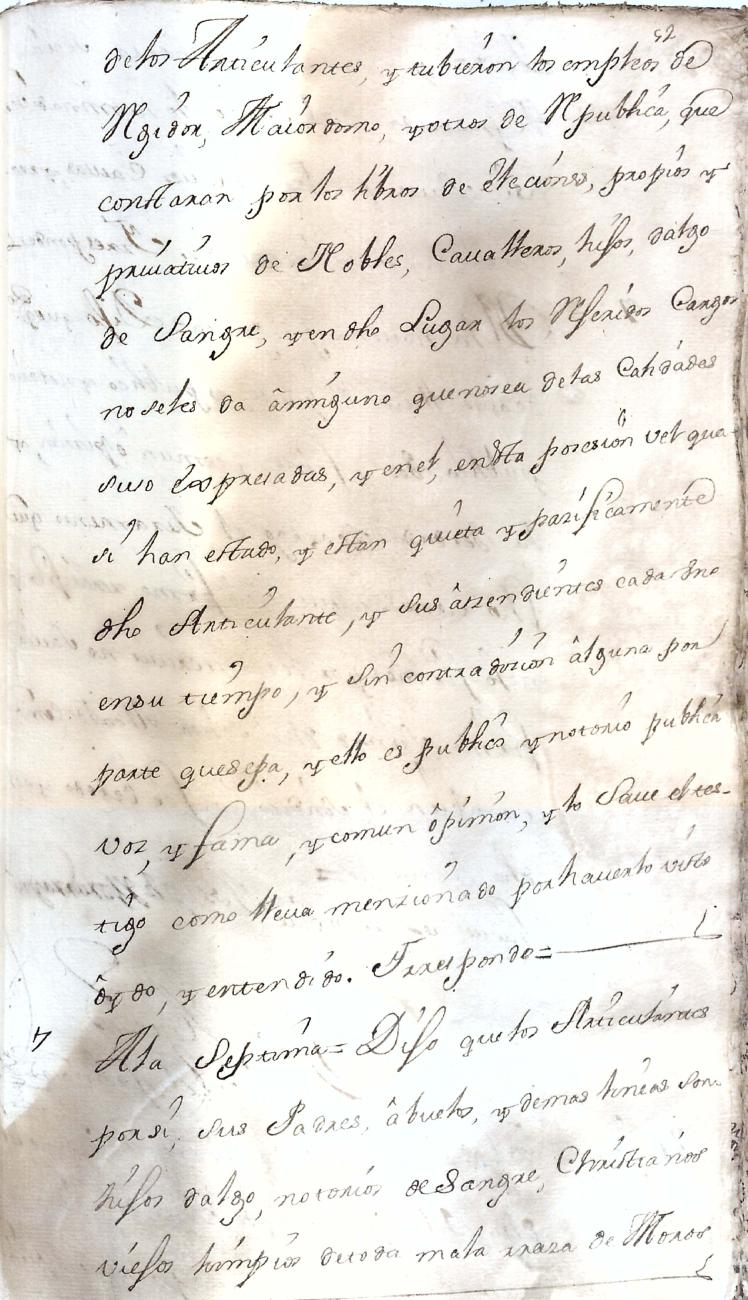 52
delos Articulantes, y tubieron los empleos de
Rgidor, Maiordomo, y otros de Republica, que
constaran por los libros de eleciones, propios y
priuatiuos de Nobles, Caualleros, hijos, dalgo
de Sangre, y en dho Lugar los Referidos Cargos
no seles da â ninguno que no sea delas Calidades
suso expresadas, y enel, en dta posesiôn vel qua-
si han estado, y estan quieta y pazificamente
dho Articulante, y sus âszendientes cada vno
ensu tiempo, y sin contradizion âlguna por
parte quesepa, y ello es publico y notorio publica
voz, y fama, y comun ôpinion, y lo Saue el tes-
tigo como lleua menzionado por hauerlo visto
ôydo, y entendido. Yrresponde=
7
Ala Septima= Dijo que los Articulantes
por si, sus Padres, âbuelos, y demas lineas son
hijos dalgo, notorios de Sangre, Christianos
viejos limpios de toda mala rraza de Moros